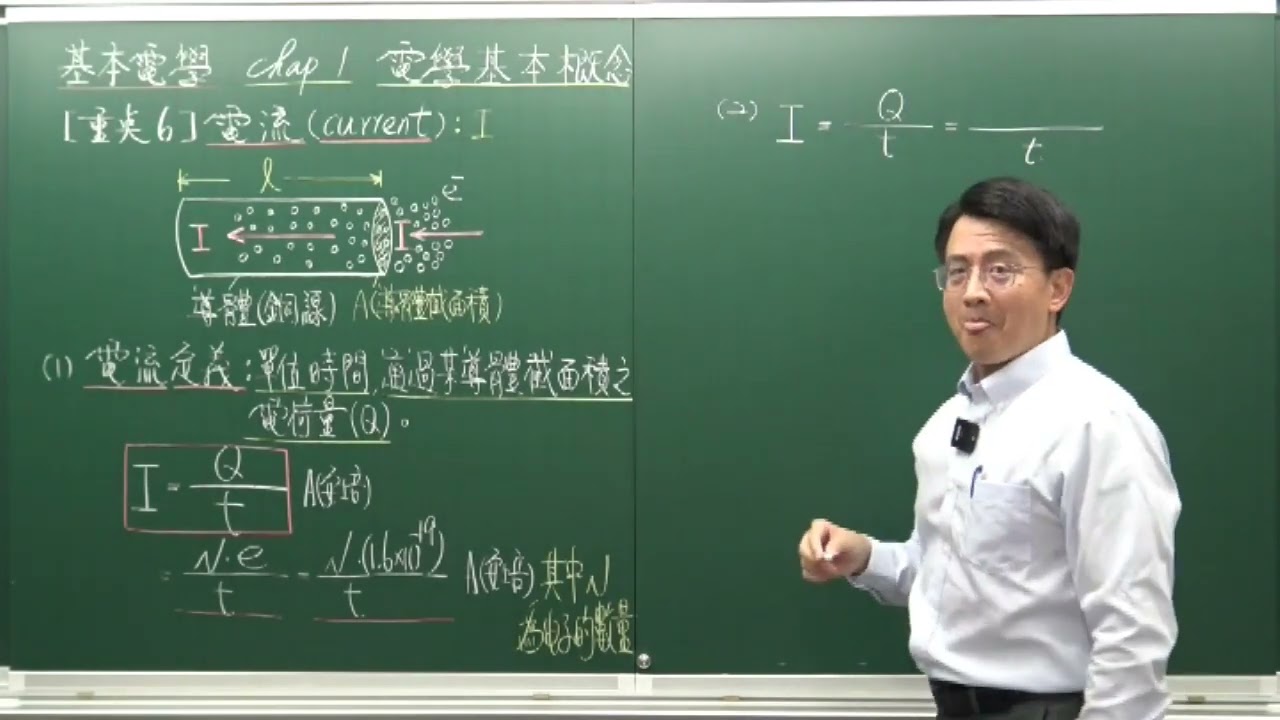 基本電學 chap 1 電學基本概念
[重點6] 電流(current): I
l
ē
I I
導體(銅線) A(導體截面積)
(1) 電流定義:單位時間,通過某導體截面積之
電荷量(Q)。
I = Q/t A(安培)
= N·e/t = N·(1.6×10⁻¹⁹)/t A(安培) 其中N
為電子的數量
(2) I = Q/t = /t